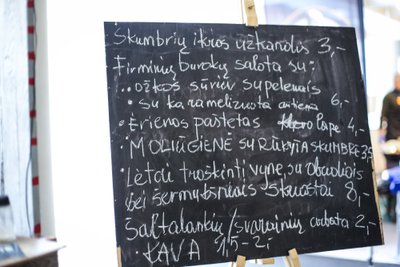 Skumbrių ikros užkandis 3,-
Firminių burokų salota su:
··ožkos sūriu su pelėsiais
• su karamelizuota antiena 6,-
• Ėrienos paštetas 4,-
• MOLIŪGIENĖ SU RŪKYTA SKUMBRE 3,5
• Lėtai troškinti vyne, su obuoliais
bei šermukšniais skruostai 8,-
Šaltalankių/svarainių arbata 2,-
• KAVA 1,5-2,-